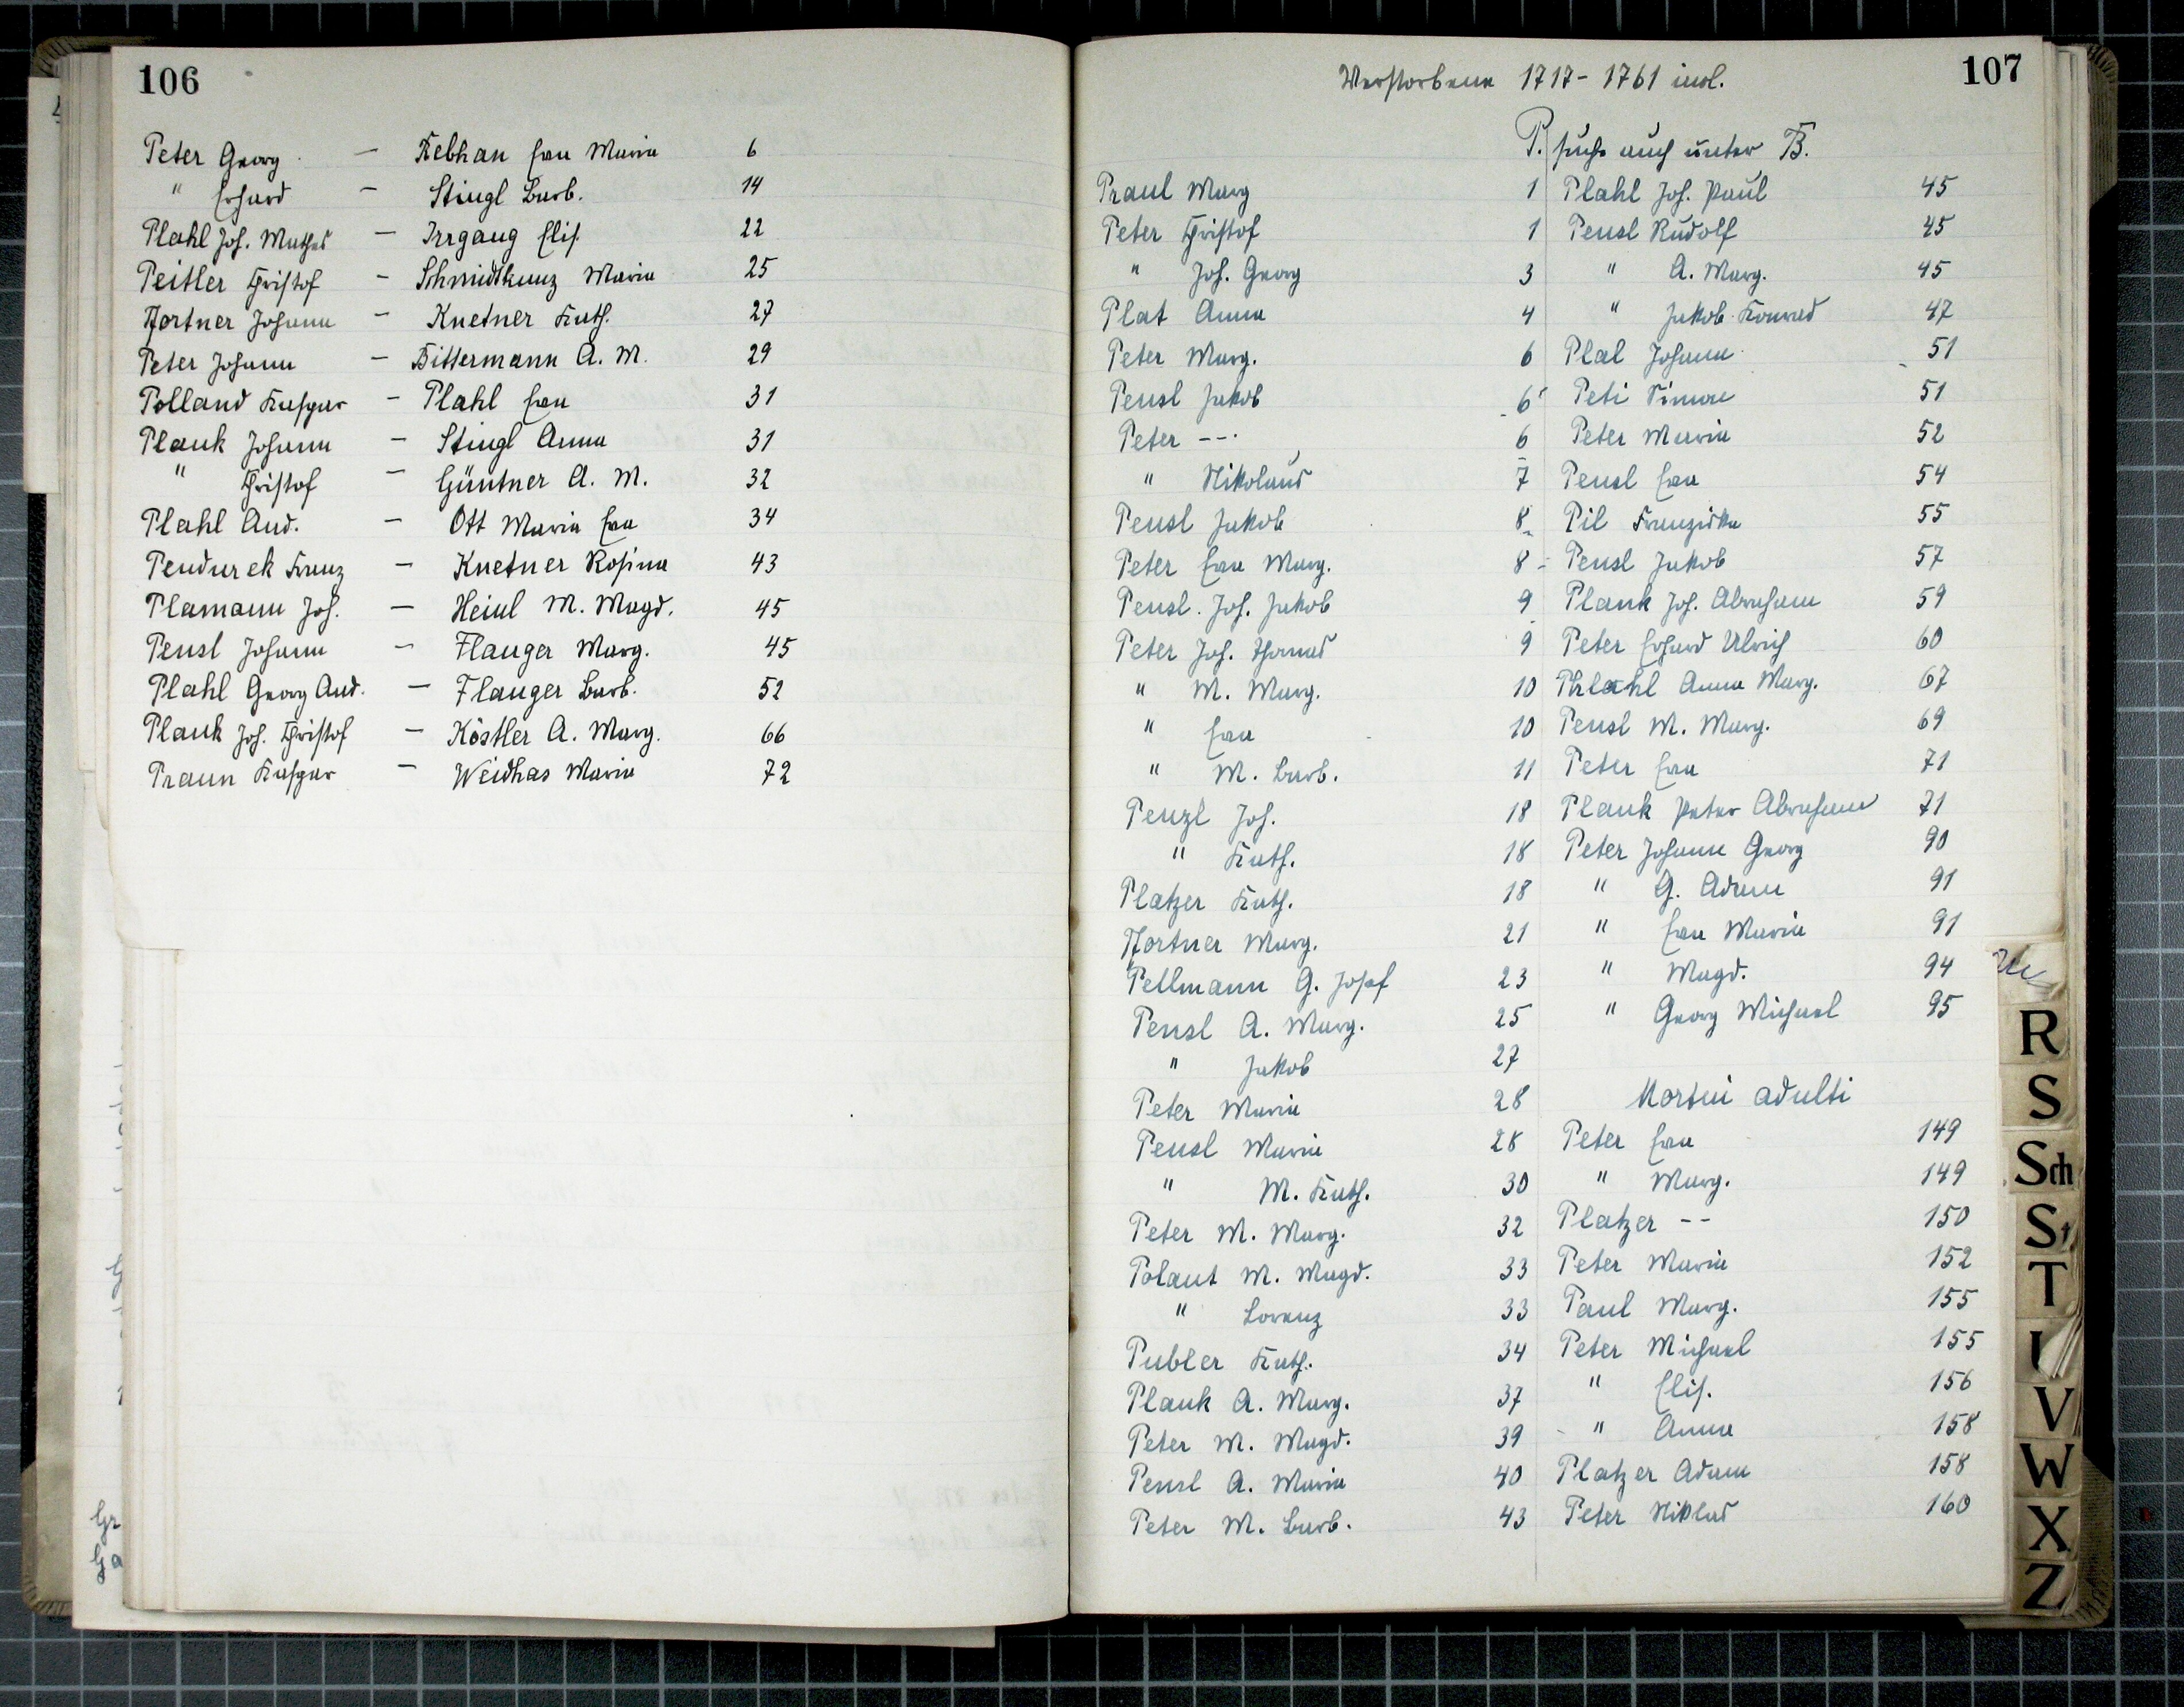 106
Peter Georg – Rebhan Eva Maria 6
" Erhard – Stingl Barb. 14
Plahl Joh. Mathes – Irrgang Elis. 22
Peitler Christof – Schmidtkunz Maria 25
Pfortner Johann – Knetner Kath. 27
Peter Johann – Bittermann A. M. 29
Polland Kaspar – Plahl Eva 31
Plank Johann – Stingl Anna 31
" Christof – Güntner A. M. 32
Plahl And. – Ott Maria Eva 34
Pendurek Franz – Knetner Rosina 43
Plamann Joh. – Heinl M. Magd. 45
Pensl Johann – Flauger Marg. 45
Plahl Georg And. – Flauger Barb. 52
Plank Joh. Christof – Köstler A. Marg. 66
Praun Kaspar – Weidhas Maria 72
107
Verstorbene 1717 - 1761 incl.
P. suche auch unter B.
Praul Marg 1
Peter Christof 1
" Joh. Georg 3
Plat Anna 4
Peter Marg. 6
Pensl Jakob 6
Peter --- 6
" Nikolaus 7
Pensl Jakob 8
Peter Eva Marg. 8
Pensl. Joh. Jakob 9
Peter Joh. Thomas 9
" M. Marg. 10
" Eva 10
" M. Barb. 11
Penzl Joh. 18
" Kath. 18
Platzer Kath. 18
Pfortner Marg. 21
Pellmann G. Josef 23
Pensl A. Marg. 25
" Jakob 27
Peter Maria 28
Pensl Maria 28
" M. Kath. 30
Peter M. Marg. 32
Polant M. Magd. 33
" Lorenz 33
Publer Kath. 34
Plank A. Marg. 37
Peter M. Magd. 39
Pensl A. Maria 40
Peter M. Barb. 43
Plahl Joh. Paul 45
Pensl Rudolf 45
" A. Marg. 45
" Jakob Konrad 47
Plal Johann 51
Peti Simon 51
Peter Maria 52
Pensl Eva 54
Pil Franziska 55
Pensl Jakob 57
Plank Joh. Abraham 59
Peter Erhard Ulrich 60
Phlahl Anna Marg. 67
Pensl M. Marg. 69
Peter Eva 71
Plank Peter Abraham 71
Peter Johann Georg 90
" G. Adam 91
" Eva Maria 91
" Magd. 94
" Georg Michael 95
Mortui adulti
Peter Eva 149
" Marg. 149
Platzer -- 150
Peter Maria 152
Paul Marg. 155
Peter Michael 155
" Elis. 156
" Anna 158
Platzer Adam 158
Peter Niklas 160
R
S
Sch
St
T
V
W
X
Z